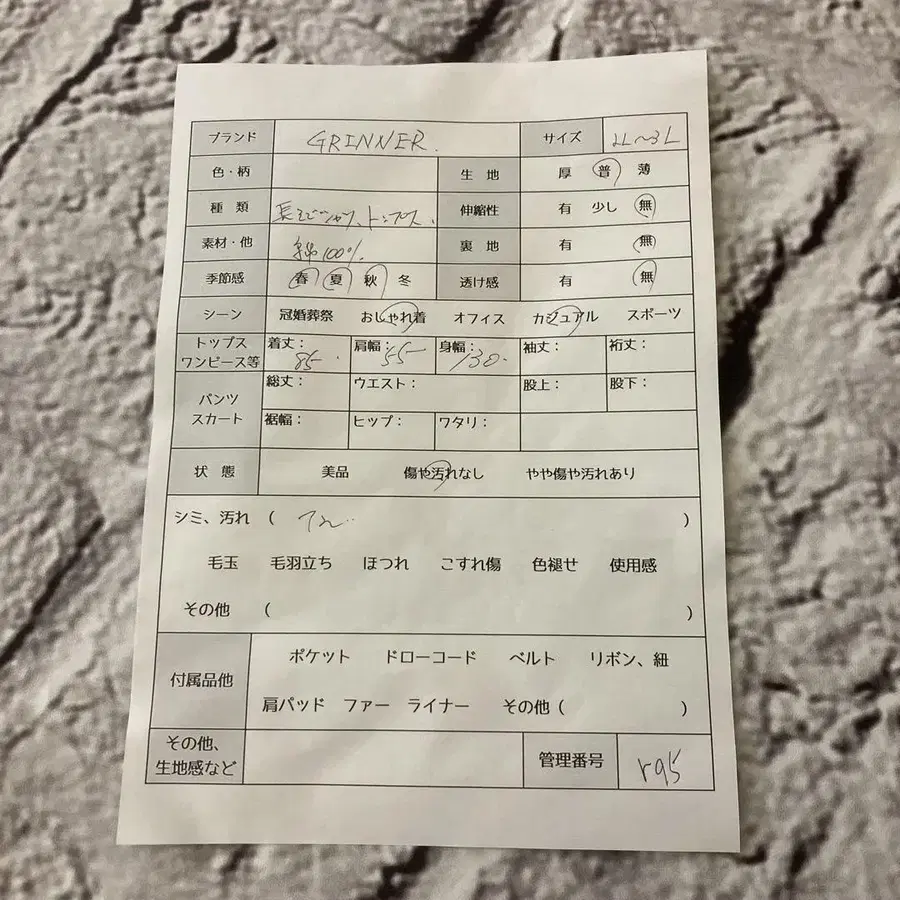 ブランド GRINNER. サイズ 2L〜3L
色・柄 生地 厚 普 薄
種類 長そでシャツ、トップス、 伸縮性 有 少し 無
素材・他 綿100% 裏地 有 無
季節感 春 夏 秋 冬 透け感 有 無
シーン 冠婚葬祭 おしゃれ着 オフィス カジュアル スポーツ
トップス ワンピース等 着丈：85 肩幅：55 身幅：130 袖丈： 裄丈：
パンツ スカート 総丈： ウエスト： 股上： 股下：
裾幅： ヒップ： ワタリ：
状態 美品 傷や汚れなし やや傷や汚れあり
シミ、汚れ ( )
毛玉 毛羽立ち ほつれ こすれ傷 色褪せ 使用感
その他 ( )
付属品他 ポケット ドローコード ベルト リボン、紐
肩パッド ファー ライナー その他 ( )
その他、生地感など 管理番号 r95